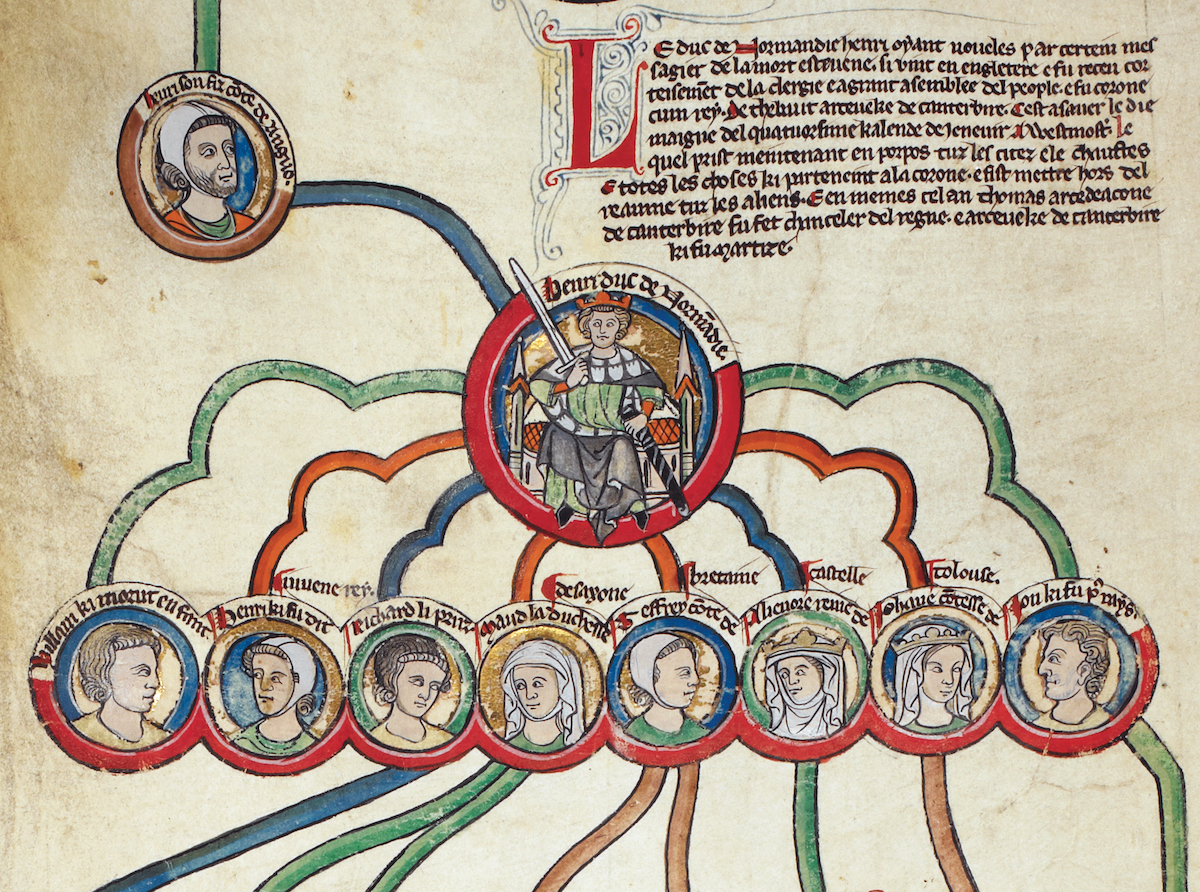 Le duc de Normandie henri oyant noueles par certein mes
sagier de la mort esteuene. si vint en engletere e fu receu cor
teisemēt de la clergie e a grant asemblee del people. e fu corone
cum rey. de thebaut arceueke de canterbire. Cest a sauer le die
maigne del quatuorsime kalende de Jeneuir A Westmost̄. le
quel prist meintenant en porpos tuz les citez e le chaustes
E totes les choses ki parteneint a la corone. e fist mettre hors del
reaume tuz les aliens. E en memes cel an thomas arcedeacone
de canterbire fu fet chanceler del regne. e arceueke de canterbire
ki fu martire.
henri son fiz cōte de Angeo.
henri duc de Normādie.
Willam ki morut enfant
Henri ki fu dit
iuuene rey.
Richard li prīz
Maud la duchesse
de saxone
Geffrey cōte de
bretaine
Alienore reine de
castelle
Johane cōtesse de
tolouse.
Jon ki fu pꝰ rays.